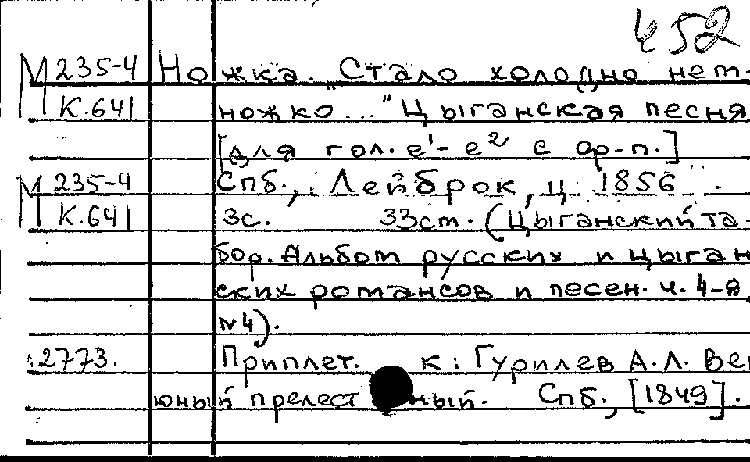 452
М 235-4 Ножка. "Стало холодно нем-
К.641 ножко..." Цыганская песня
[для гол. e¹-e² с ф-п.]
М 235-4 Спб., Лейброк, ц. 1856
К.641 3с. 33см. (Цыганский та-
бор. Альбом русских и цыган
ских романсов и песен. ч. 4-я
№4).
2773. Приплет. к: Гурилев А.Л. Ве
юный прелест ный. Спб., [1849].